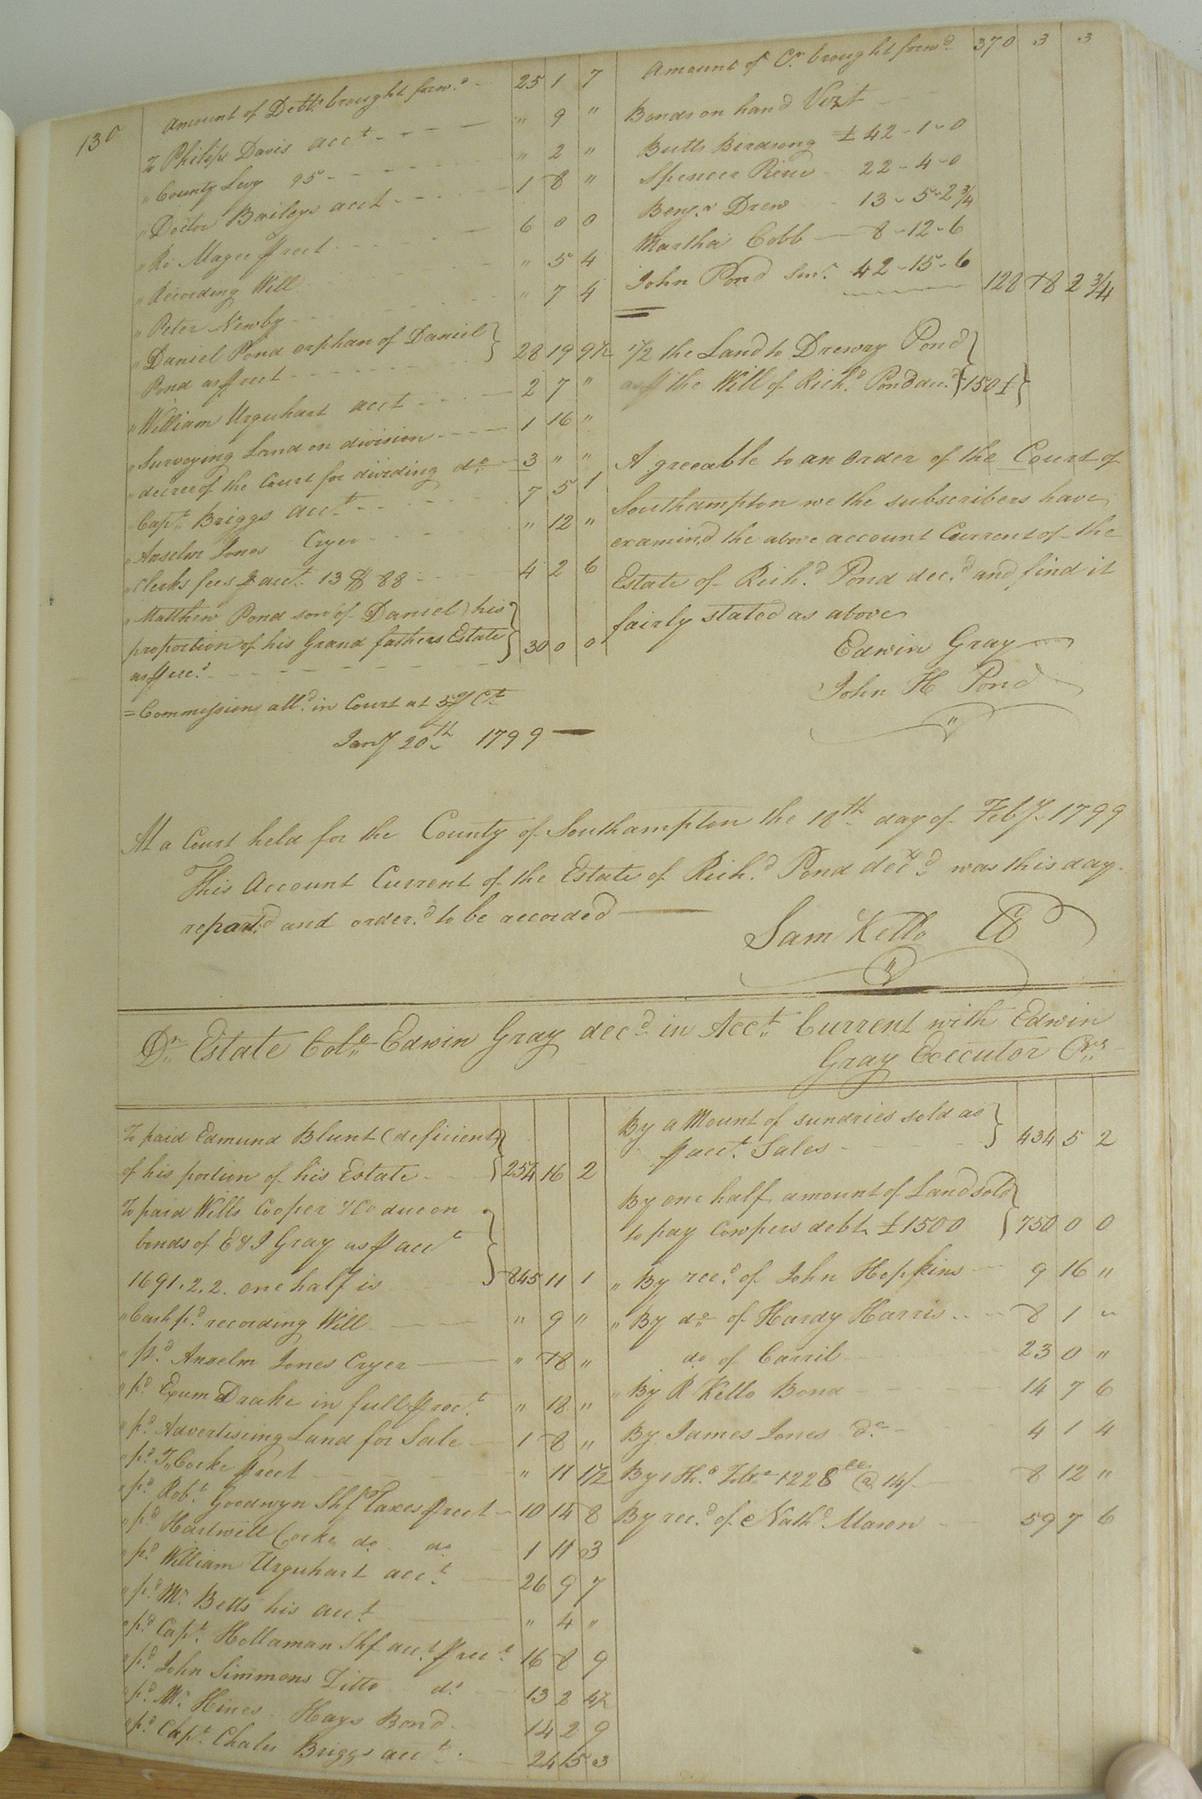 130
Amount of Debts brought forw.d 25 1 7
To Philip Davis acct " 9 "
" County Levy 95 " 2 "
" Doctor Baileys acct 1 8 "
" Ro Magee ⅌ rect 6 0 0
" Recording Will " 5 4
" Peter Newby " 7 4
" Daniel Pond orphan of Daniel
Pond as ⅌ rect 28 19 9½
" William Urquhart acct 2 7 "
" Surveying Land on division 1 16 "
" decree of the Court for dividing do 3 " "
Capt Briggs acct 7 5 1
" Anselm Jones Cryer " 12 "
" Clerks fees ⅌ acct. 13 & 88 4 2 6
" Matthew Pond son of Daniel his
proportion of his Grand fathers Estate
as ⅌ rec.t 30 0 0
= Commissions alld. in Court at 5 ⅌ Ct
Jany 20th 1799
Amount of Cr. brought forwd. 370 3 3
Bonds on hand Vizt
Butts Birdsong £ 42-1-0
Spencer Rew 22-4-0
Benj.n Drew 13-5-2¾
Martha Cobb 8-12-6
John Pond Senr. 42-15-6 128 18 2¾
1/2 the Land to Drewry Pond
as ⅌ the Will of Rich.d Pond dec.d 150£
A greeable to an order of the Court of
Southampton we the subscribers have
examined the above account Current of the
Estate of Rich.d Pond dec.d and find it
fairly stated as above
Edwin Gray
John H Pond
At a Court held for the County of Southampton the 18th day of Feby. 1799
This Account Current of the Estate of Rich.d Pond dec.d was this day
return.d and order.d to be recorded
Sam Kello CC
Dr. Estate Colo. Edwin Gray decd. in Acct. Current with Edwin
Gray Executor Crs
To paid Edmund Blunt (deficient
of his portion of his Estate 254 16 2
To paid Wills Cooper & Co due on
bonds of E & J Gray as ⅌ acct
1691.2.2. one half is 845 11 1
" Cash pd. recording Will " 9 "
" pd. Anselm Jones Cryer " 18 "
" pd. Exum Drake in full ⅌ rec.t " 18 "
" pd. Advertising Land for Sale 1 8 "
" pd. T. Cocke ⅌ rect " 11 1½
" pd. Robt. Goodwyn Shf Taxes ⅌ rect 10 14 8
" pd. Hartwell Cocke do do 1 11 3
" pd. William Urquhart acc.t 26 9 7
" pd. Mr. Betts his acc.t " 4 "
" pd. Capt. Hollaman Shf acc.t ⅌ rec.t 16 8 9
" pd. John Simmons Ditto do 13 2 4½
" pd. Mr. Hines Hays Bond 14 2 9
" pd. Capt. Chales Briggs acct. 24 15 3
By a Mount of sundries sold as
⅌ acct. Sales 434 5 2
By one half amount of Land sold
to pay Cowpers debt £1500 750 0 0
" By rec.d of John Hopkins 9 16 "
" By do of Hardy Harris 8 1 "
do of Carril 23 0 "
" By R Kello Bond 14 7 6
By James Jones do 4 1 4
1228 @ 14/ 8 12 "
By rec.d of Nath.l Mason 59 7 6